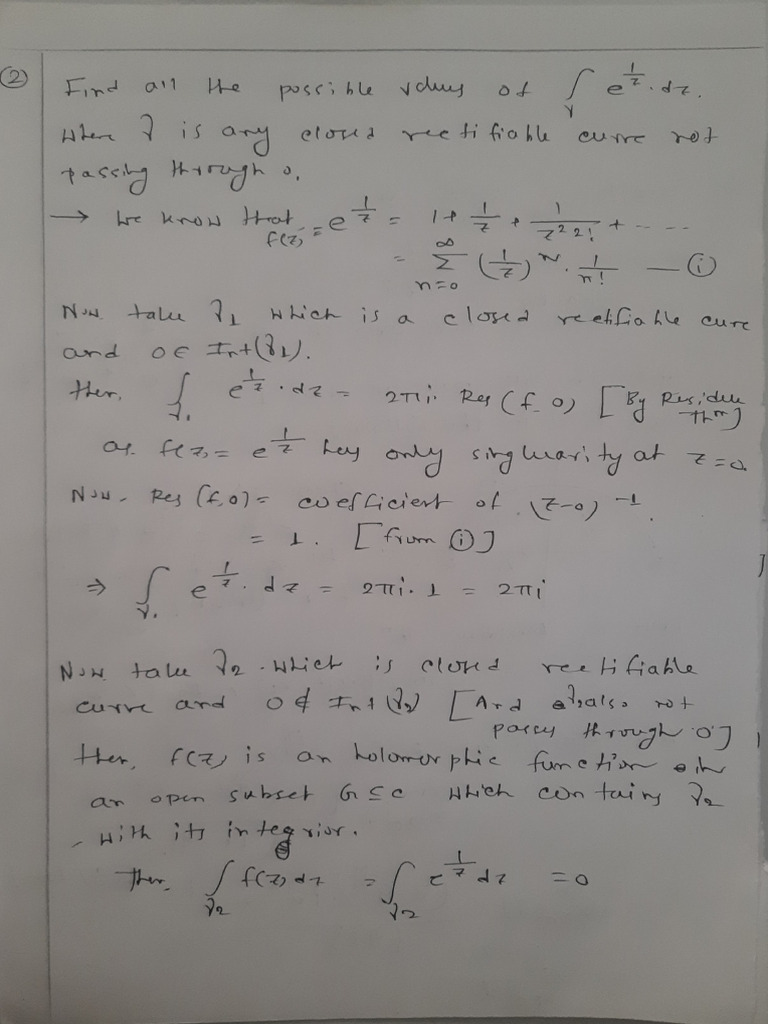 ② Find all the possible values of ∫_γ e^{1/z}.dz.
where γ is any closed rectifiable curve not
passing through 0.
→ We know that f(z) = e^{1/z} = 1 + 1/z + 1/(z² 2!) + ....
= ∑_{n=0}^{∞} (1/z)^n . 1/n! — (i)
Now take γ₁ which is a closed rectifiable cure
and 0 ∈ Int(γ₁).
then, ∫_{γ₁} e^{1/z}.dz = 2πi. Res (f, 0) [By Residue Thm]
as f(z) = e^{1/z} has only singluarity at z=0.
Now, Res (f,0) = coefficient of (z-0)^{-1}.
= 1. [from (i)]
⇒ ∫_{γ₁} e^{1/z}.dz = 2πi.1 = 2πi
Now take γ₂ which is closed rectifiable
curve and 0 ∉ Int(γ₂) [And also not
passes through 0]
then, f(z) is an holomorphic function in
an open subset G ⊆ C which contains γ₂
with its integrior.
Then, ∫_{γ₂} f(z) dz = ∫_{γ₂} e^{1/z} dz = 0